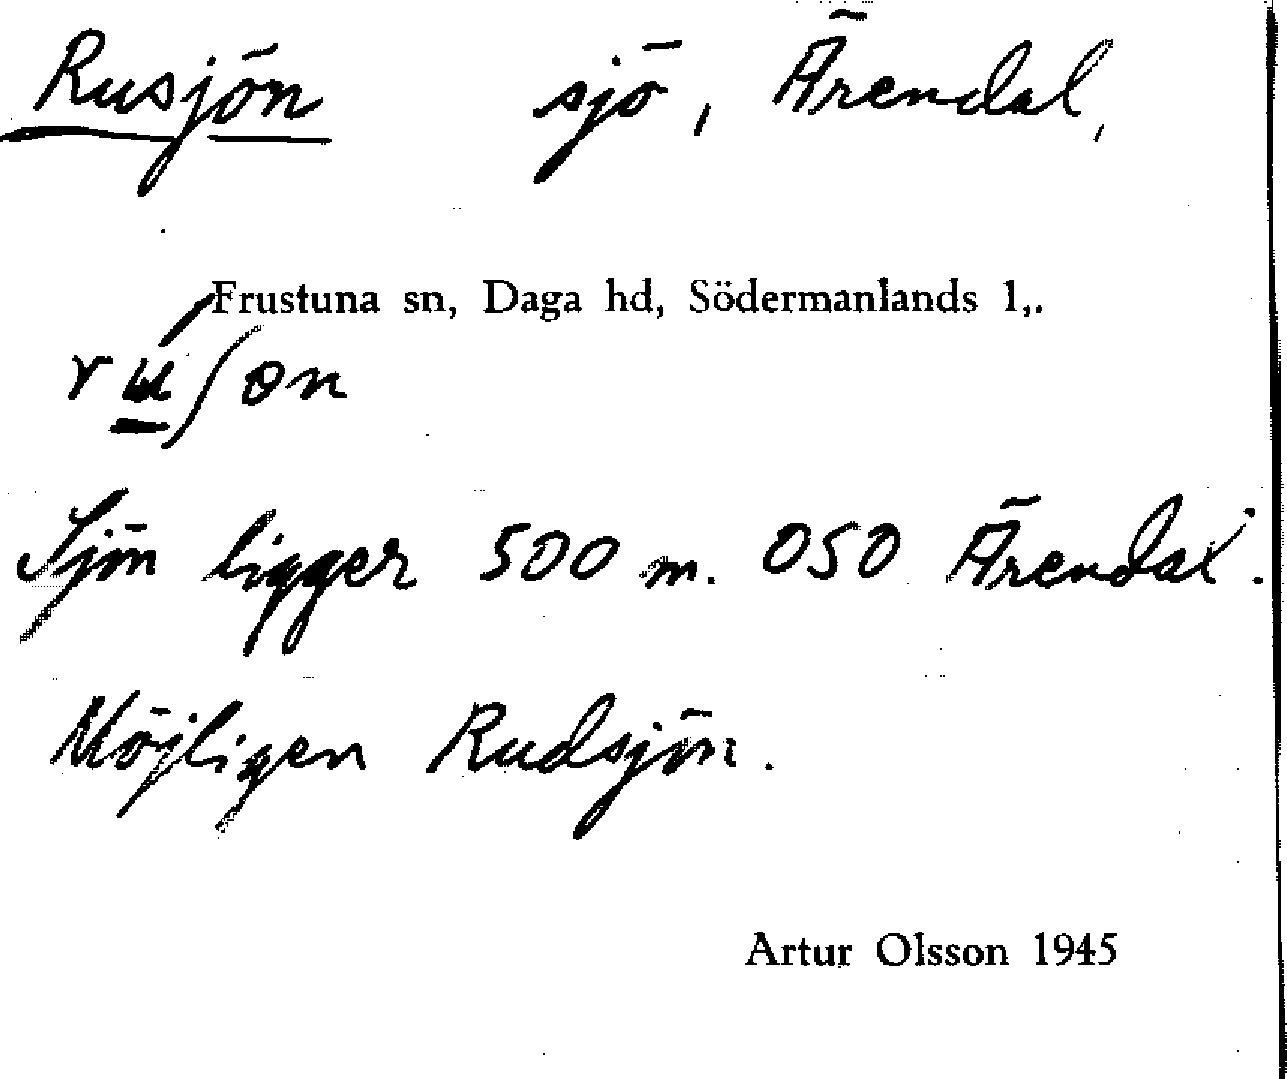 Rusjön sjö, Ärendal,
Frustuna sn, Daga hd, Södermanlands l,.
rú̲ʃon
Sjön ligger 500 m. OSO Ärendal.
Möjligen Rudsjön.
Artur Olsson 1945